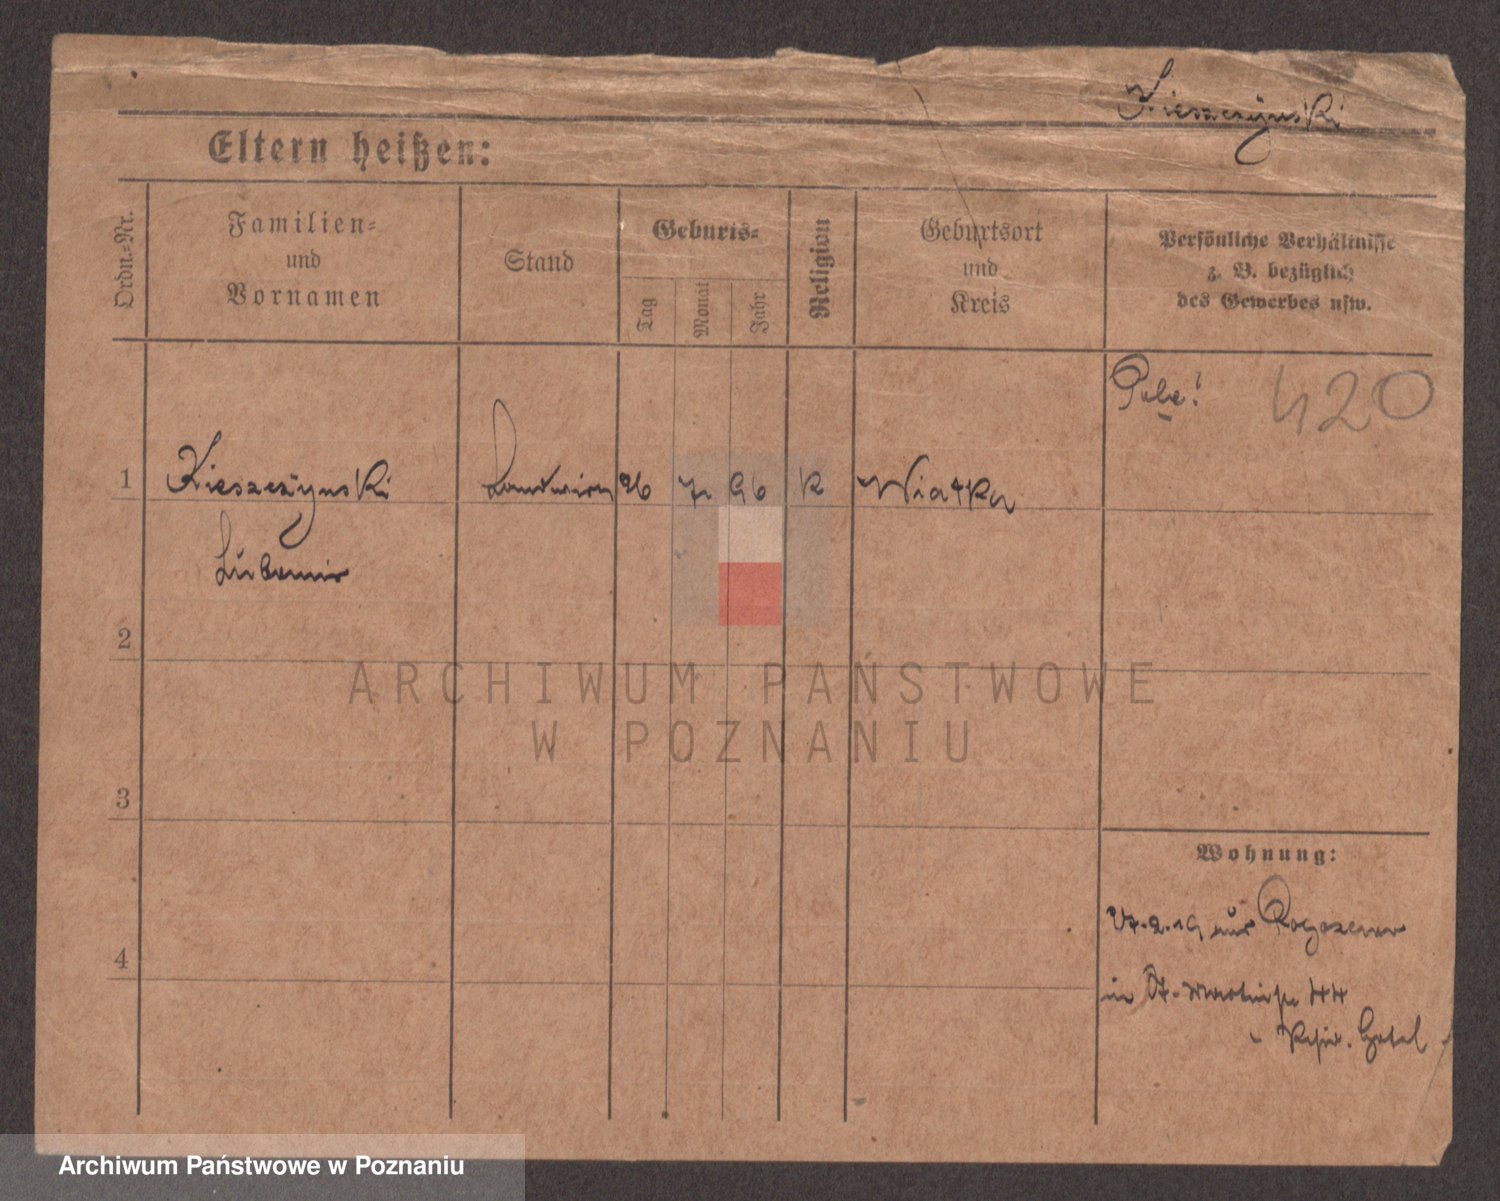 Kieszczynski
Eltern heißen:
Ordn.-Nr.
Familien-
und
Vornamen
Stand
Geburts-
Tag
Monat
Jahr
Religion
Geburtsort
und
Kreis
Persönliche Verhältnisse
z. B. bezüglich
des Gewerbes usw.
Pole!
420
1
Kieszczynski
Landwirt
26
7.
96
K
Wiatka
Lubomir
2
ARCHIWUM PAŃSTWOWE
W POZNANIU
3
Wohnung:
2.19 aus Rogozewo
4
in St. Martinstr 44
Hotel
Archiwum Państwowe w Poznaniu